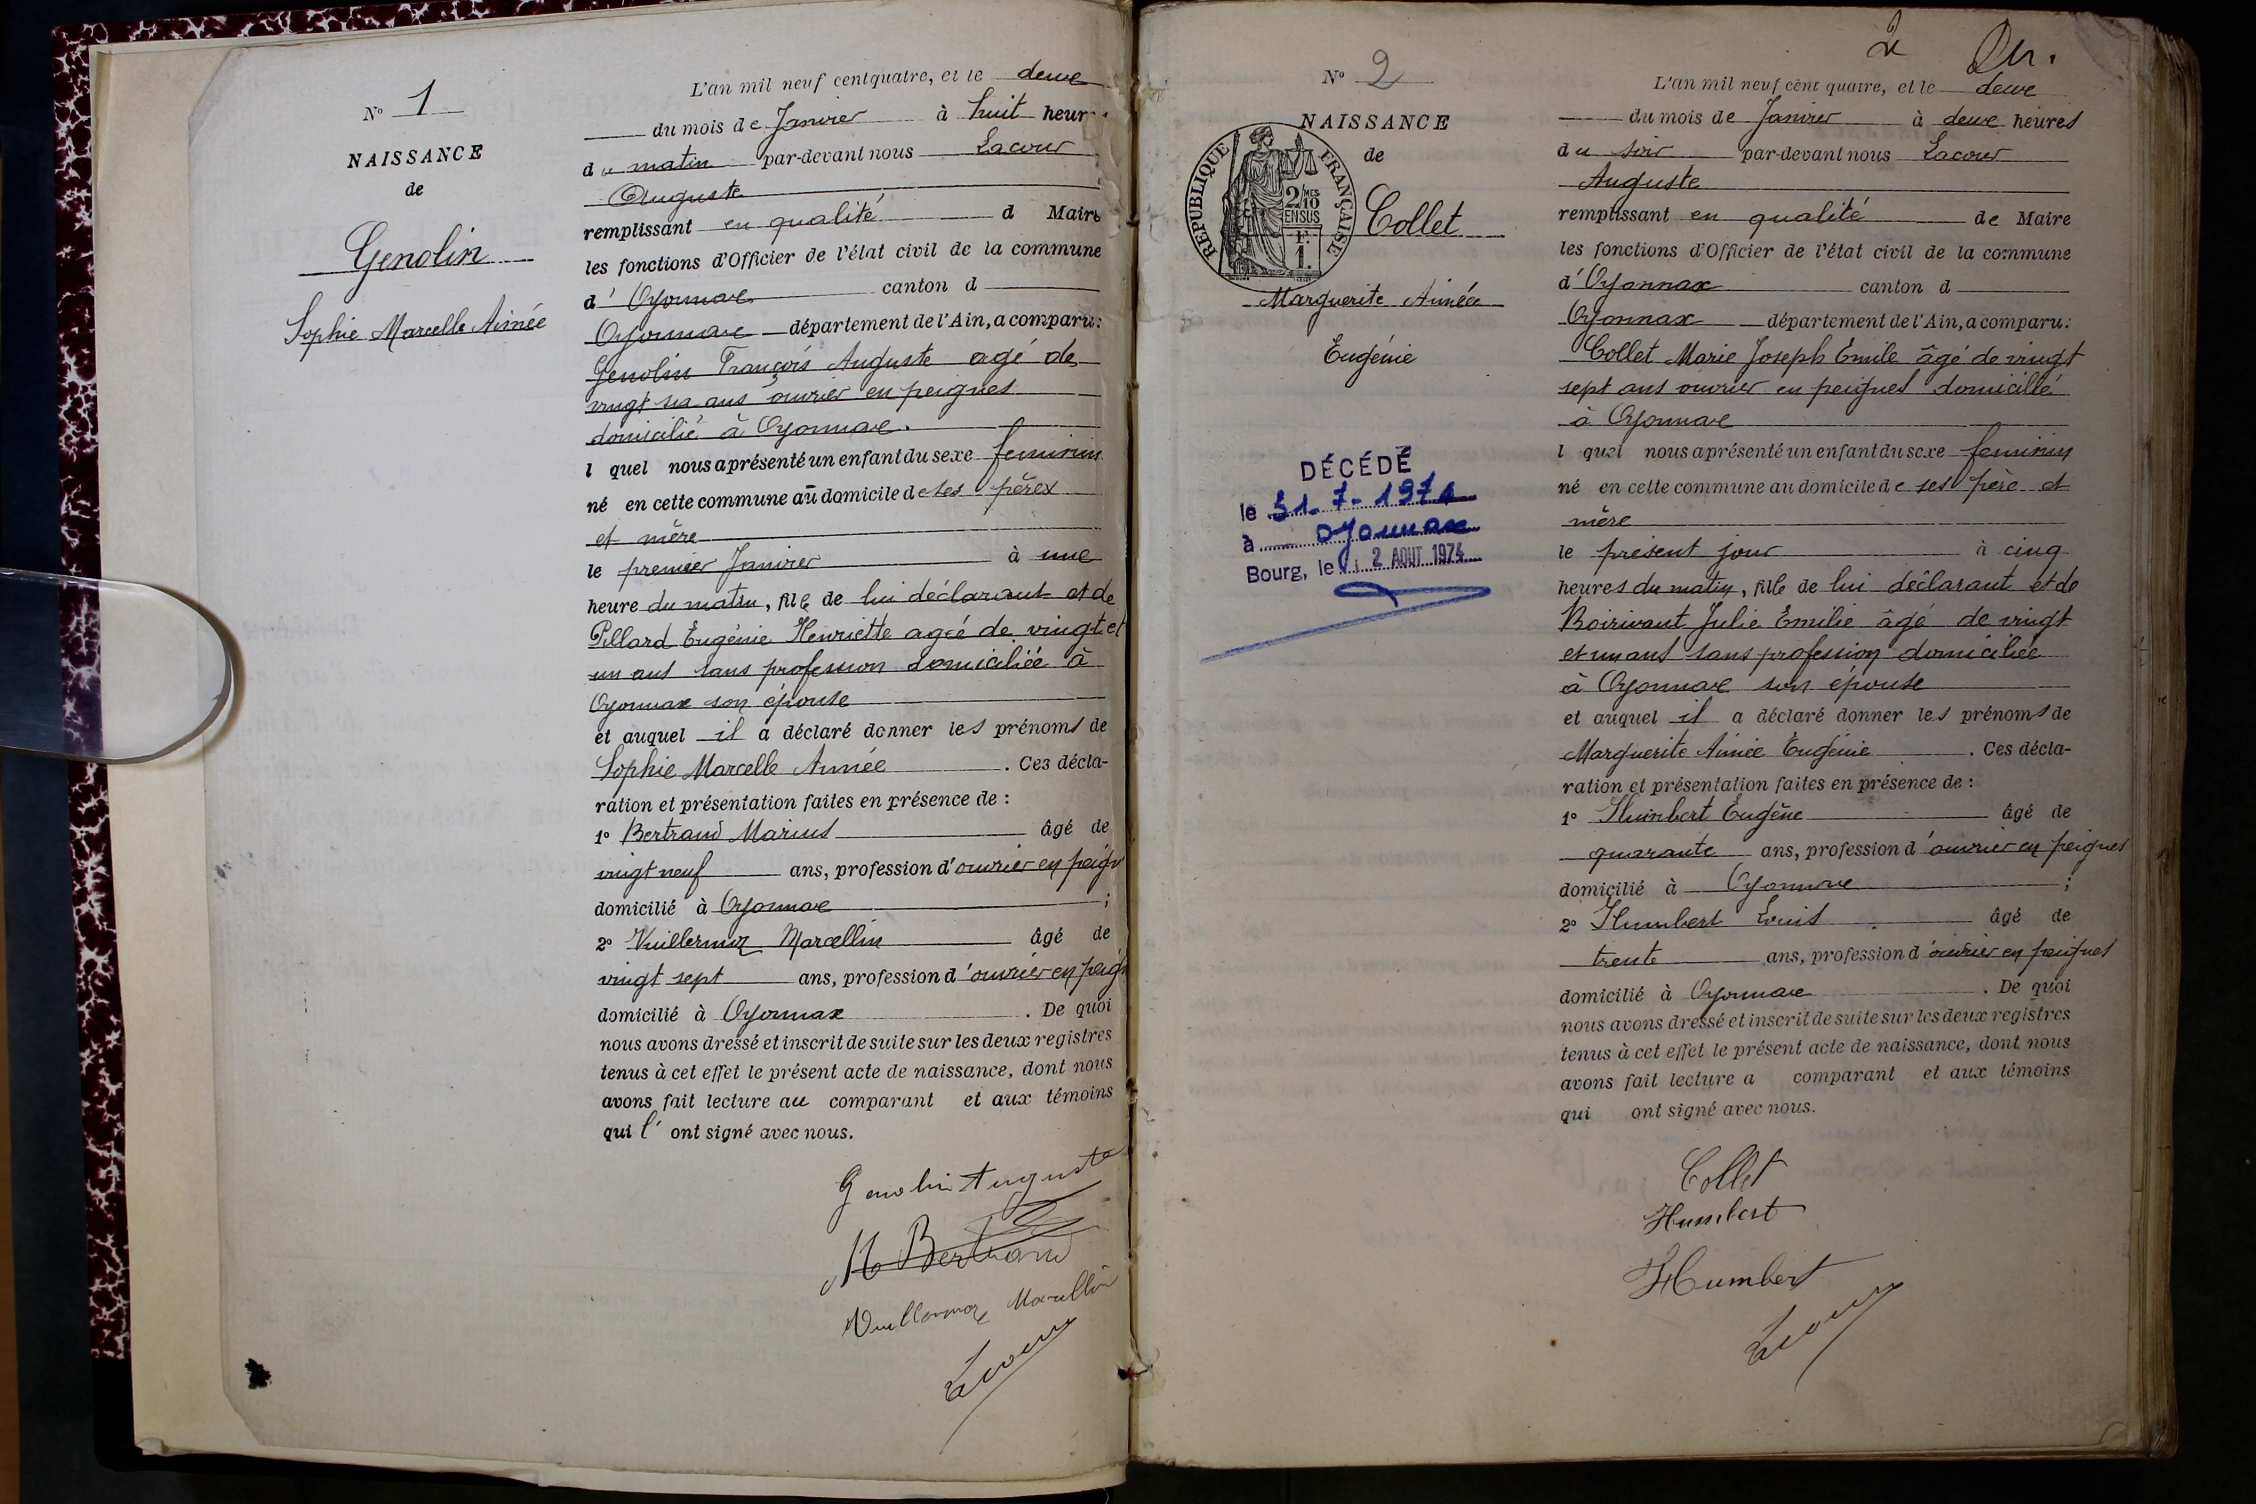 N° 1
NAISSANCE
de
Genolin
Sophie Marcelle Aimée
L'an mil neuf cent quatre, et le deux
du mois de Janvier à huit heur
du matin par-devant nous Lacour
Auguste
remplissant en qualité d Maire
les fonctions d'Officier de l'état civil de la commune
d' Oyonnax canton d
Oyonnax département de l'Ain, a comparu:
Genolin François Auguste agé de
vingt six ans ouvrier en peignes
domicilié à Oyonnax.
l quel nous a présenté un enfant du sexe feminin
né en cette commune au domicile de ses pères
et mère
le premier Janvier à une
heure du matin, fille de lui déclarant et de
Pillard Eugénie Henriette agée de vingt et
un ans sans profession domiciliée à
Oyonnax son épouse
et auquel il a déclaré donner les prénoms de
Sophie Marcelle Aimée . Ces décla-
ration et présentation faites en présence de :
1° Bertrand Marius âgé de
vingt neuf ans, profession d'ouvrier en peign
domicilié à Oyonnax ;
2° Vuillermoz Marcellin âgé de
vingt sept ans, profession d'ouvrier en peign
domicilié à Oyonnax . De quoi
nous avons dressé et inscrit de suite sur les deux registres
tenus à cet effet le présent acte de naissance, dont nous
avons fait lecture au comparant et aux témoins
qui l' ont signé avec nous.
Genolin Auguste
M Bertrand
Vuillermoz Marcellin
Lacour
2
N° 2
NAISSANCE
de
REPUBLIQUE FRANÇAISE
2/10 MES
EN SUS
1 F.
Collet
Marguerite Aimée
Eugénie
DÉCÉDÉ
le 31-7-1974
à Oyonnax
Bourg, le 2 AOUT 1974
L'an mil neuf cent quatre, et le deux
du mois de Janvier à deux heures
du soir par-devant nous Lacour
Auguste
remplissant en qualité de Maire
les fonctions d'Officier de l'état civil de la commune
d'Oyonnax canton d
Oyonnax département de l'Ain, a comparu:
Collet Marie Joseph Emile âgé de vingt
sept ans ouvrier en peignes domicilié
à Oyonnax
l quel nous a présenté un enfant du sexe feminin
né en cette commune au domicile de ses père et
mère
le présent jour à cinq
heures du matin, fille de lui déclarant et de
Roirivant Julie Emilie âgé de vingt
et un ans sans profession domiciliée
à Oyonnax son épouse
et auquel il a déclaré donner les prénoms de
Marguerite Aimée Eugénie . Ces décla-
ration et présentation faites en présence de :
1° Humbert Eugène âgé de
quarante ans, profession d'ouvrier en peignes
domicilié à Oyonnax ;
2° Humbert Louis âgé de
trente ans, profession d'ouvrier en peignes
domicilié à Oyonnax . De quoi
nous avons dressé et inscrit de suite sur les deux registres
tenus à cet effet le présent acte de naissance, dont nous
avons fait lecture a comparant et aux témoins
qui ont signé avec nous.
Collet
Humbert
Humbert
Lacour